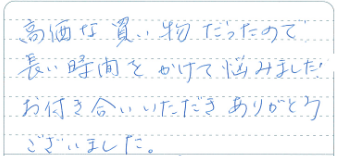 高価な買い物だったので
長い時間をかけて悩みました
お付き合いいただきありがとう
ございました。